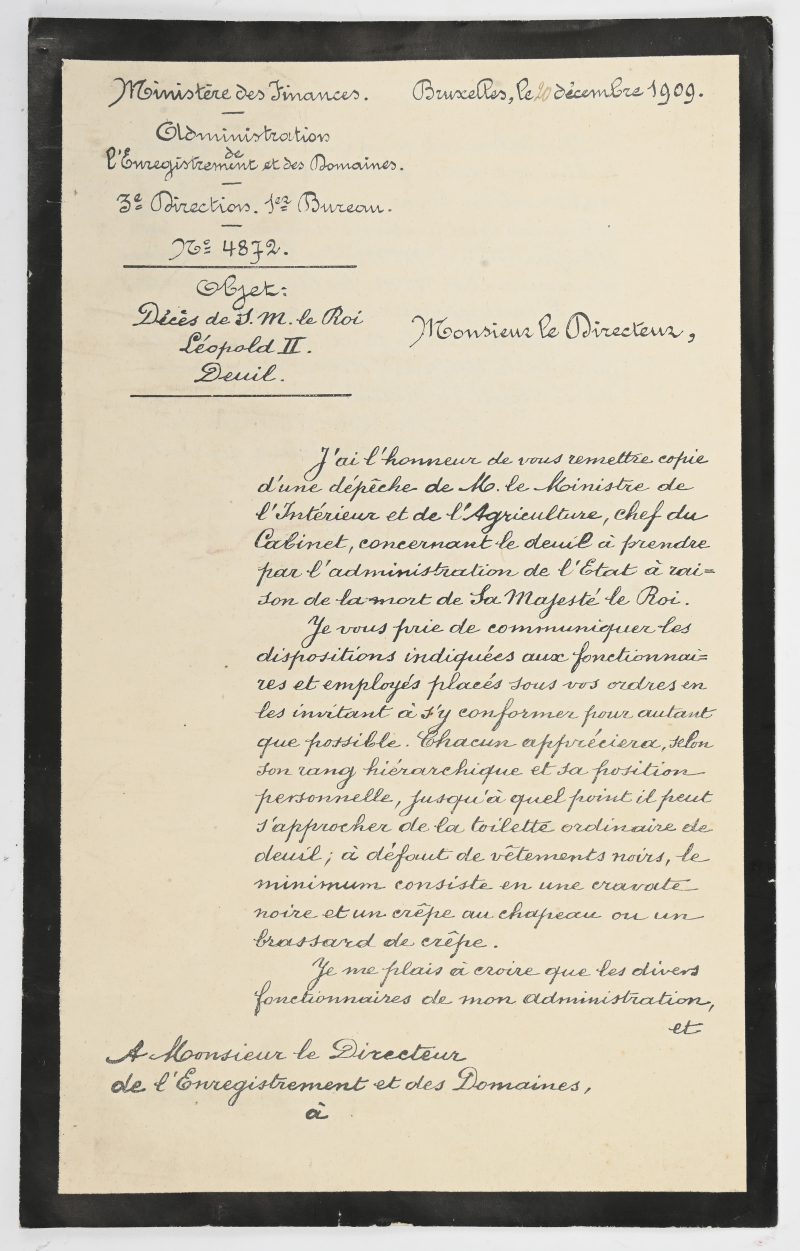 Ministère des Finances.
Bruxelles, le 20 décembre 1909.
Administration
de
l'Enregistrement et des Domaines.
3e Direction. 1er Bureau.
No 4872.
Objet:
Décès de S. M. le Roi
Léopold II.
Deuil.
Monsieur le Directeur,
J'ai l'honneur de vous remettre copie
d'une dépêche de M. le Ministre de
l'Intérieur et de l'Agriculture, chef du
Cabinet, concernant le deuil à prendre
par l'administration de l'Etat à rai=
son de la mort de Sa Majesté le Roi.
Je vous prie de communiquer les
dispositions indiquées aux fonctionnai=
res et employés placés sous vos ordres en
les invitant à s'y conformer pour autant
que possible. Chacun appréciera, selon
son rang hiérarchique et sa position
personnelle, jusqu'à quel point il peut
s'approcher de la toilette ordinaire de
deuil; à défaut de vêtements noirs, le
minimum consiste en une cravate
noire et un crêpe au chapeau ou un
brassard de crêpe.
Je me plais à croire que les divers
fonctionnaires de mon administration,
et
A Monsieur le Directeur
de l'Enregistrement et des Domaines,
à